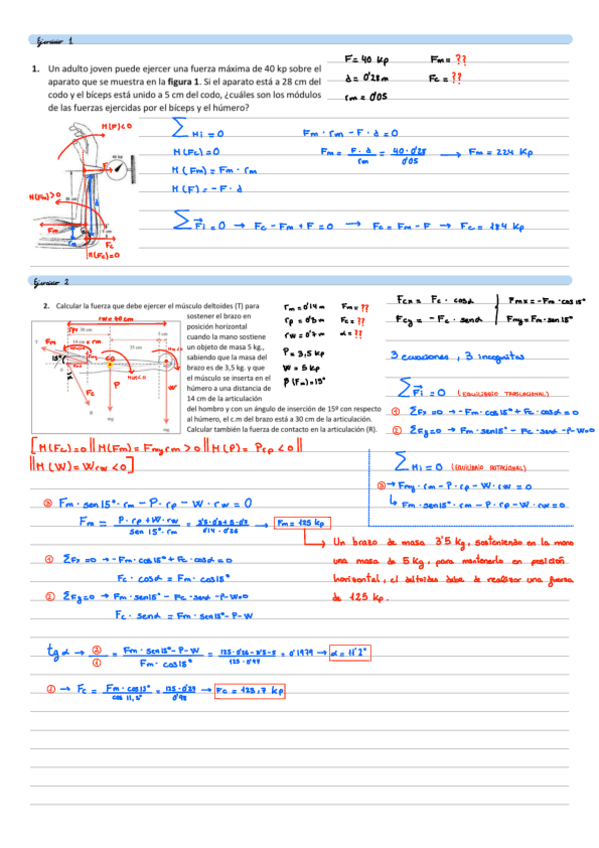 Ejercicio 1
1. Un adulto joven puede ejercer una fuerza máxima de 40 kp sobre el
aparato que se muestra en la figura 1. Si el aparato está a 28 cm del
codo y el bíceps está unido a 5 cm del codo, ¿cuáles son los módulos
de las fuerzas ejercidas por el bíceps y el húmero?
F = 40 kp Fm = ??
d = 0'28m Fc = ??
rm = 0'05
M(F)<0
M(Fm)>0
Fm
Fc
M(Fc)=0
∑Mi = 0
M(Fc)=0
M(Fm) = Fm · rm
M(F) = -F · d
Fm · rm - F · d = 0
Fm = F · d / rm = 40 · 0'28 / 0'05 → Fm = 224 Kp
∑Fi = 0 → Fc - Fm + F = 0 → Fc = Fm - F → Fc = 184 kp
Ejercicio 2
2. Calcular la fuerza que debe ejercer el músculo deltoides (T) para
sostener el brazo en
posición horizontal
cuando la mano sostiene
un objeto de masa 5 kg.,
sabiendo que la masa del
brazo es de 3,5 kg. y que
el músculo se inserta en el
húmero a una distancia de
14 cm de la articulación
del hombro y con un ángulo de inserción de 15º con respecto
al húmero, el c.m del brazo está a 30 cm de la articulación.
Calcular también la fuerza de contacto en la articulación (R).
rm = 0'14m Fm = ??
rp = 0'3m Fc = ??
rw = 0'7m α = ??
P = 3,5 kp
W = 5 kp
β(Fm) = 15°
Fm
15°
Fc
P
W
mg
Fcx = Fc · cosα
Fcy = - Fc · senα
Fmx = -Fm · cos 15°
Fmy = Fm · sen 15°
3 ecuaciones, 3 incognitas
∑Fi = 0 (EQUILIBRIO TRASLACIONAL)
① ∑Fx = 0 → -Fm · cos15° + Fc · cosα = 0
② ∑Fy = 0 → Fm · sen15° - Fc · senα - P - W = 0
∑Mi = 0 (EQUILIBRIO ROTACIONAL)
③ → Fmy · rm - P · rp - W · rw = 0
↳ Fm · sen15° · rm - P · rp - W · rw = 0
[M(Fc)=0 || M(Fm) = Fmy rm > 0 || M(P) = P rp < 0 ||
|| M(W) = W rw < 0]
③ Fm · sen 15° · rm - P · rp - W · rw = 0
Fm = P · rp + W · rw / sen 15° · rm = 3'5 · 0'3 + 5 · 0'7 / 0'14 · 0'26 → Fm = 125 kp
Un brazo de masa 3'5 kg, sosteniendo en la mano
una masa de 5 kg, para mantenerlo en posición
horizontal, el deltoides debe de realizar una fuerza
de 125 kp.
① ∑Fx = 0 → -Fm · cos15° + Fc · cosα = 0
Fc · cosα = Fm · cos15°
② ∑Fy = 0 → Fm · sen15° - Fc · senα - P - W = 0
Fc · senα = Fm · sen15° - P - W
tg α → ②/① = Fm · sen15° - P - W / Fm · cos15° = 125 · 0'26 - 3'5 - 5 / 125 · 0'97 = 0'1979 → α = 11'2°
① → Fc = Fm · cos15° / cos 11,2° = 125 · 0'97 / 0'98 → Fc = 123,7 kp